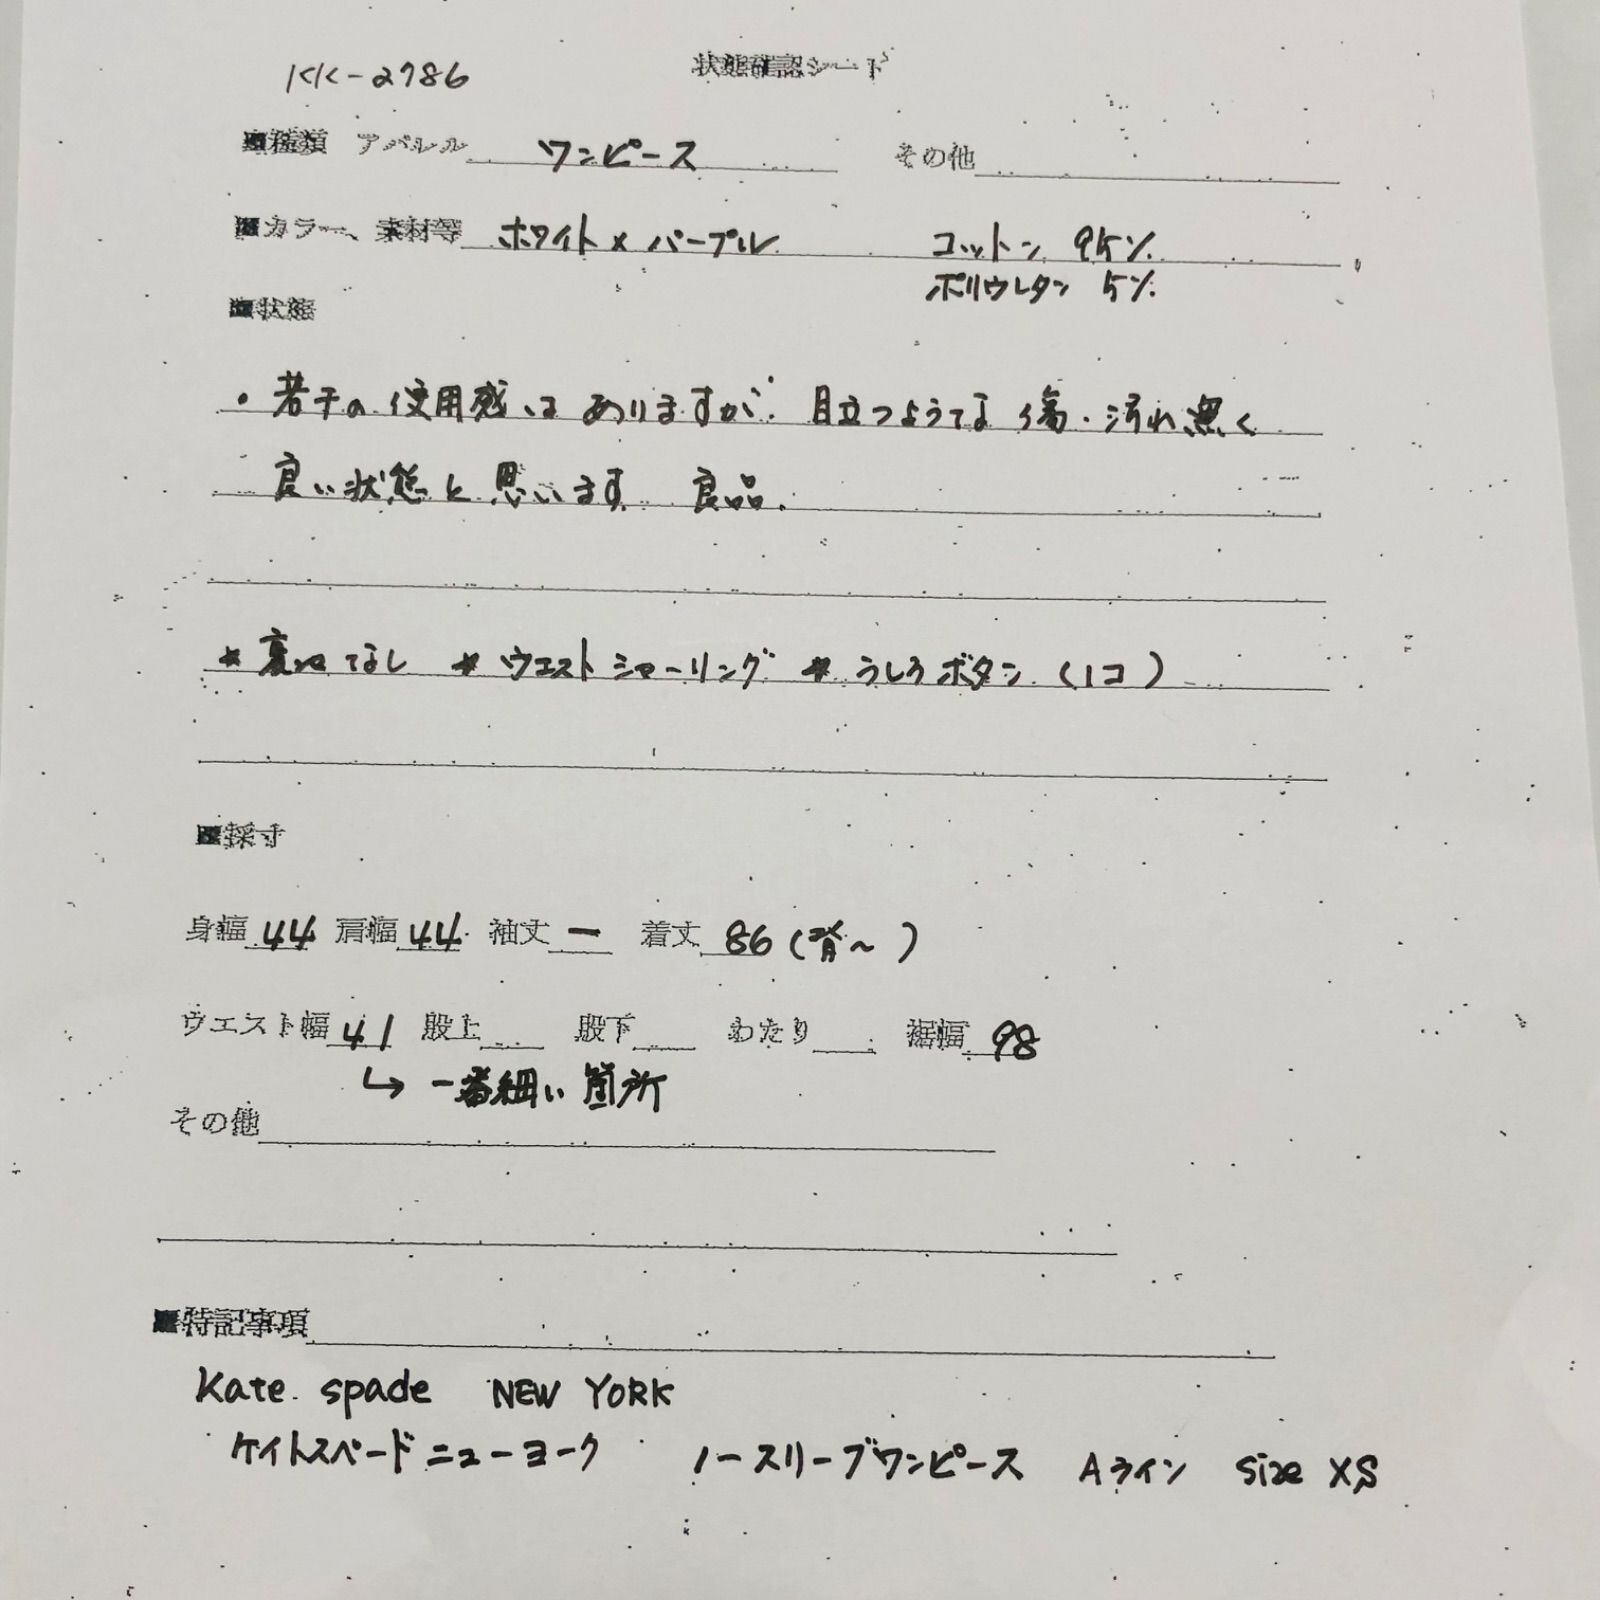 KK-2786 状態確認シート
■種類 アパレル ワンピース その他
■カラー、素材等 ホワイト×パープル コットン 95%
ポリウレタン 5%
■状態
・若干の使用感はありますが、目立つような傷・汚れ無く
良い状態と思います。良品。
* 裏地なし * ウエストシャーリング * うしろボタン (1コ)
■採寸
身幅 44 肩幅 44 袖丈 ー 着丈 86 (背〜)
ウエスト幅 41 股上 股下 わたり 裾幅 98
↳ 一番細い箇所
その他
■特記事項
Kate spade NEW YORK
ケイトスペードニューヨーク ノースリーブワンピース Aライン size XS